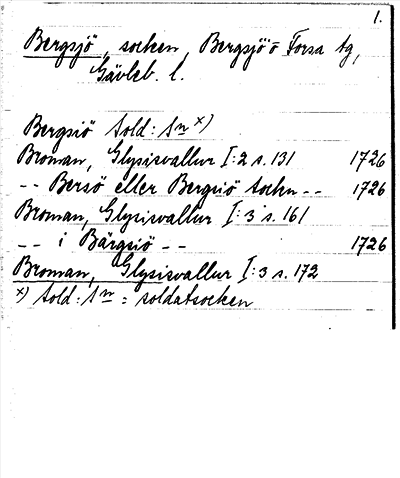 1.
Bergsjö, socken, Bergsjö o Forsa tg,
Gävleb. l.
Bergsiö Sold: Sn x)
Broman, Glysisvallur I:2 s. 131 1726
-- Bersö eller Bergsiö Sockn -- 1726
Broman, Glysisvallur I:3 s. 161
-- i Bärgsiö -- 1726
Broman, Glysisvallur I:3 s. 172
x) Sold: Sn = soldatsocken